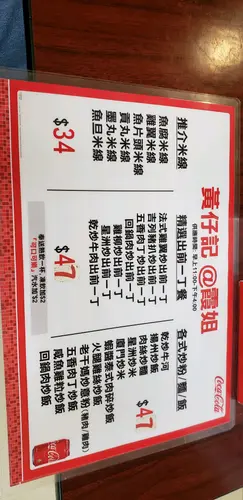 黃仔記@霞姐
供應時間:早上11:00-下午4:00
Coca-Cola
推介米線
魚腐米線
雞翼米線
魚片頭米線
貢丸米線
墨丸米線
魚旦米線
$34
精選出前一丁餐
法式雞翼炒出前一丁
吉列豬扒炒出前一丁
五香肉丁炒出前一丁
回鍋肉炒出前一丁
雞柳炒出前一丁
星洲炒出前一丁
乾炒牛肉出前一丁
$47
各式炒粉/麵/飯
乾炒牛河
肉絲炒麵
揚州炒飯
星洲炒米
廈門炒米
蝦醬泰式肉碎炒飯
火腿雞絲炒飯
老干媽炒意粉(豬肉/雞肉)
五香肉丁炒飯
咸魚雞粒炒飯
回鍋肉炒飯
$47
奉送熱飲一杯,凍飲加$2
「可口可樂」汽水加$2
Coca-Cola